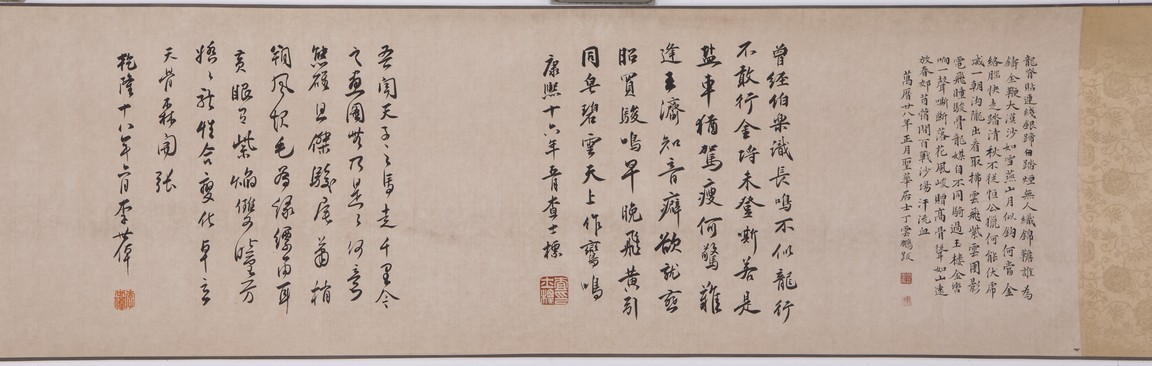 龍脊貼連錢銀蹄白踏煙無人織錦韂誰為
鑄金鞭大漠沙如雪燕山月似鈎何當金
絡腦快走踏清秋不從桓公獵何能伏虎
威一朝溝隴出看取拂雲飛紫雲團影
電飛瞳駿骨龍媒自不同騎過玉樓金轡
响一聲嘶斷落花風峻贈高骨聳如山遠
放春郊苜蓿間百戰沙場汗流血
萬曆廿八年正月聖華居士丁雲鵬跋
曾經伯樂識長鳴不似龍行
不敢行金埒未登嘶若是
鹽車猶駕瘦何驚難
逢王濟知音癖欲就燕
昭買駿鳴早晚飛黃引
同皂碧雲天上作鸞鳴
康熙十六年五月查士標
吾聞天子之馬走千里今
之畫圖無乃是是何意
態雄且傑駿尾蕭梢
朔風起毛為綠縹兩耳
黃眼有紫焰雙瞳方
矯矯龍性合變化卓立
天骨森開張
乾隆十八年六月李葂